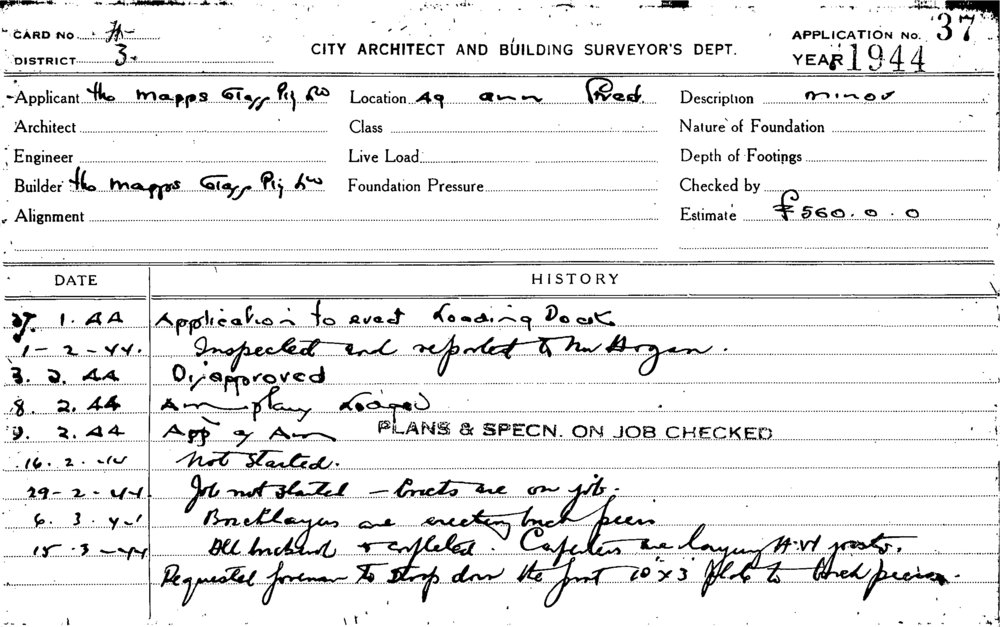 CARD No. A
DISTRICT 3.
CITY ARCHITECT AND BUILDING SURVEYOR'S DEPT.
APPLICATION No. 37
YEAR 1944
Applicant Mapps Location 49 ann Street Description minor
Architect Class Nature of Foundation
Engineer Live Load Depth of Footings
Builder Mapps Foundation Pressure Checked by
Alignment Estimate £560.0.0
DATE HISTORY
27. 1. 44 Application to erect Loading Dock
1-2-44. Inspected and reported to Mr Hogan.
3. 2. 44 Disapproved
8. 2. 44 Am plans Lodged
9. 2. 44 App of Am PLANS & SPECN. ON JOB CHECKED
16. 2. 44 Not Started.
29-2-44 Job not started - bricks are on job.
6. 3. 44 Bricklayers are erecting brick piers
15.3-44 All completed. Carpenters are laying joists.
Requested foreman to strap down the front 10"x3" plate to brick piers.